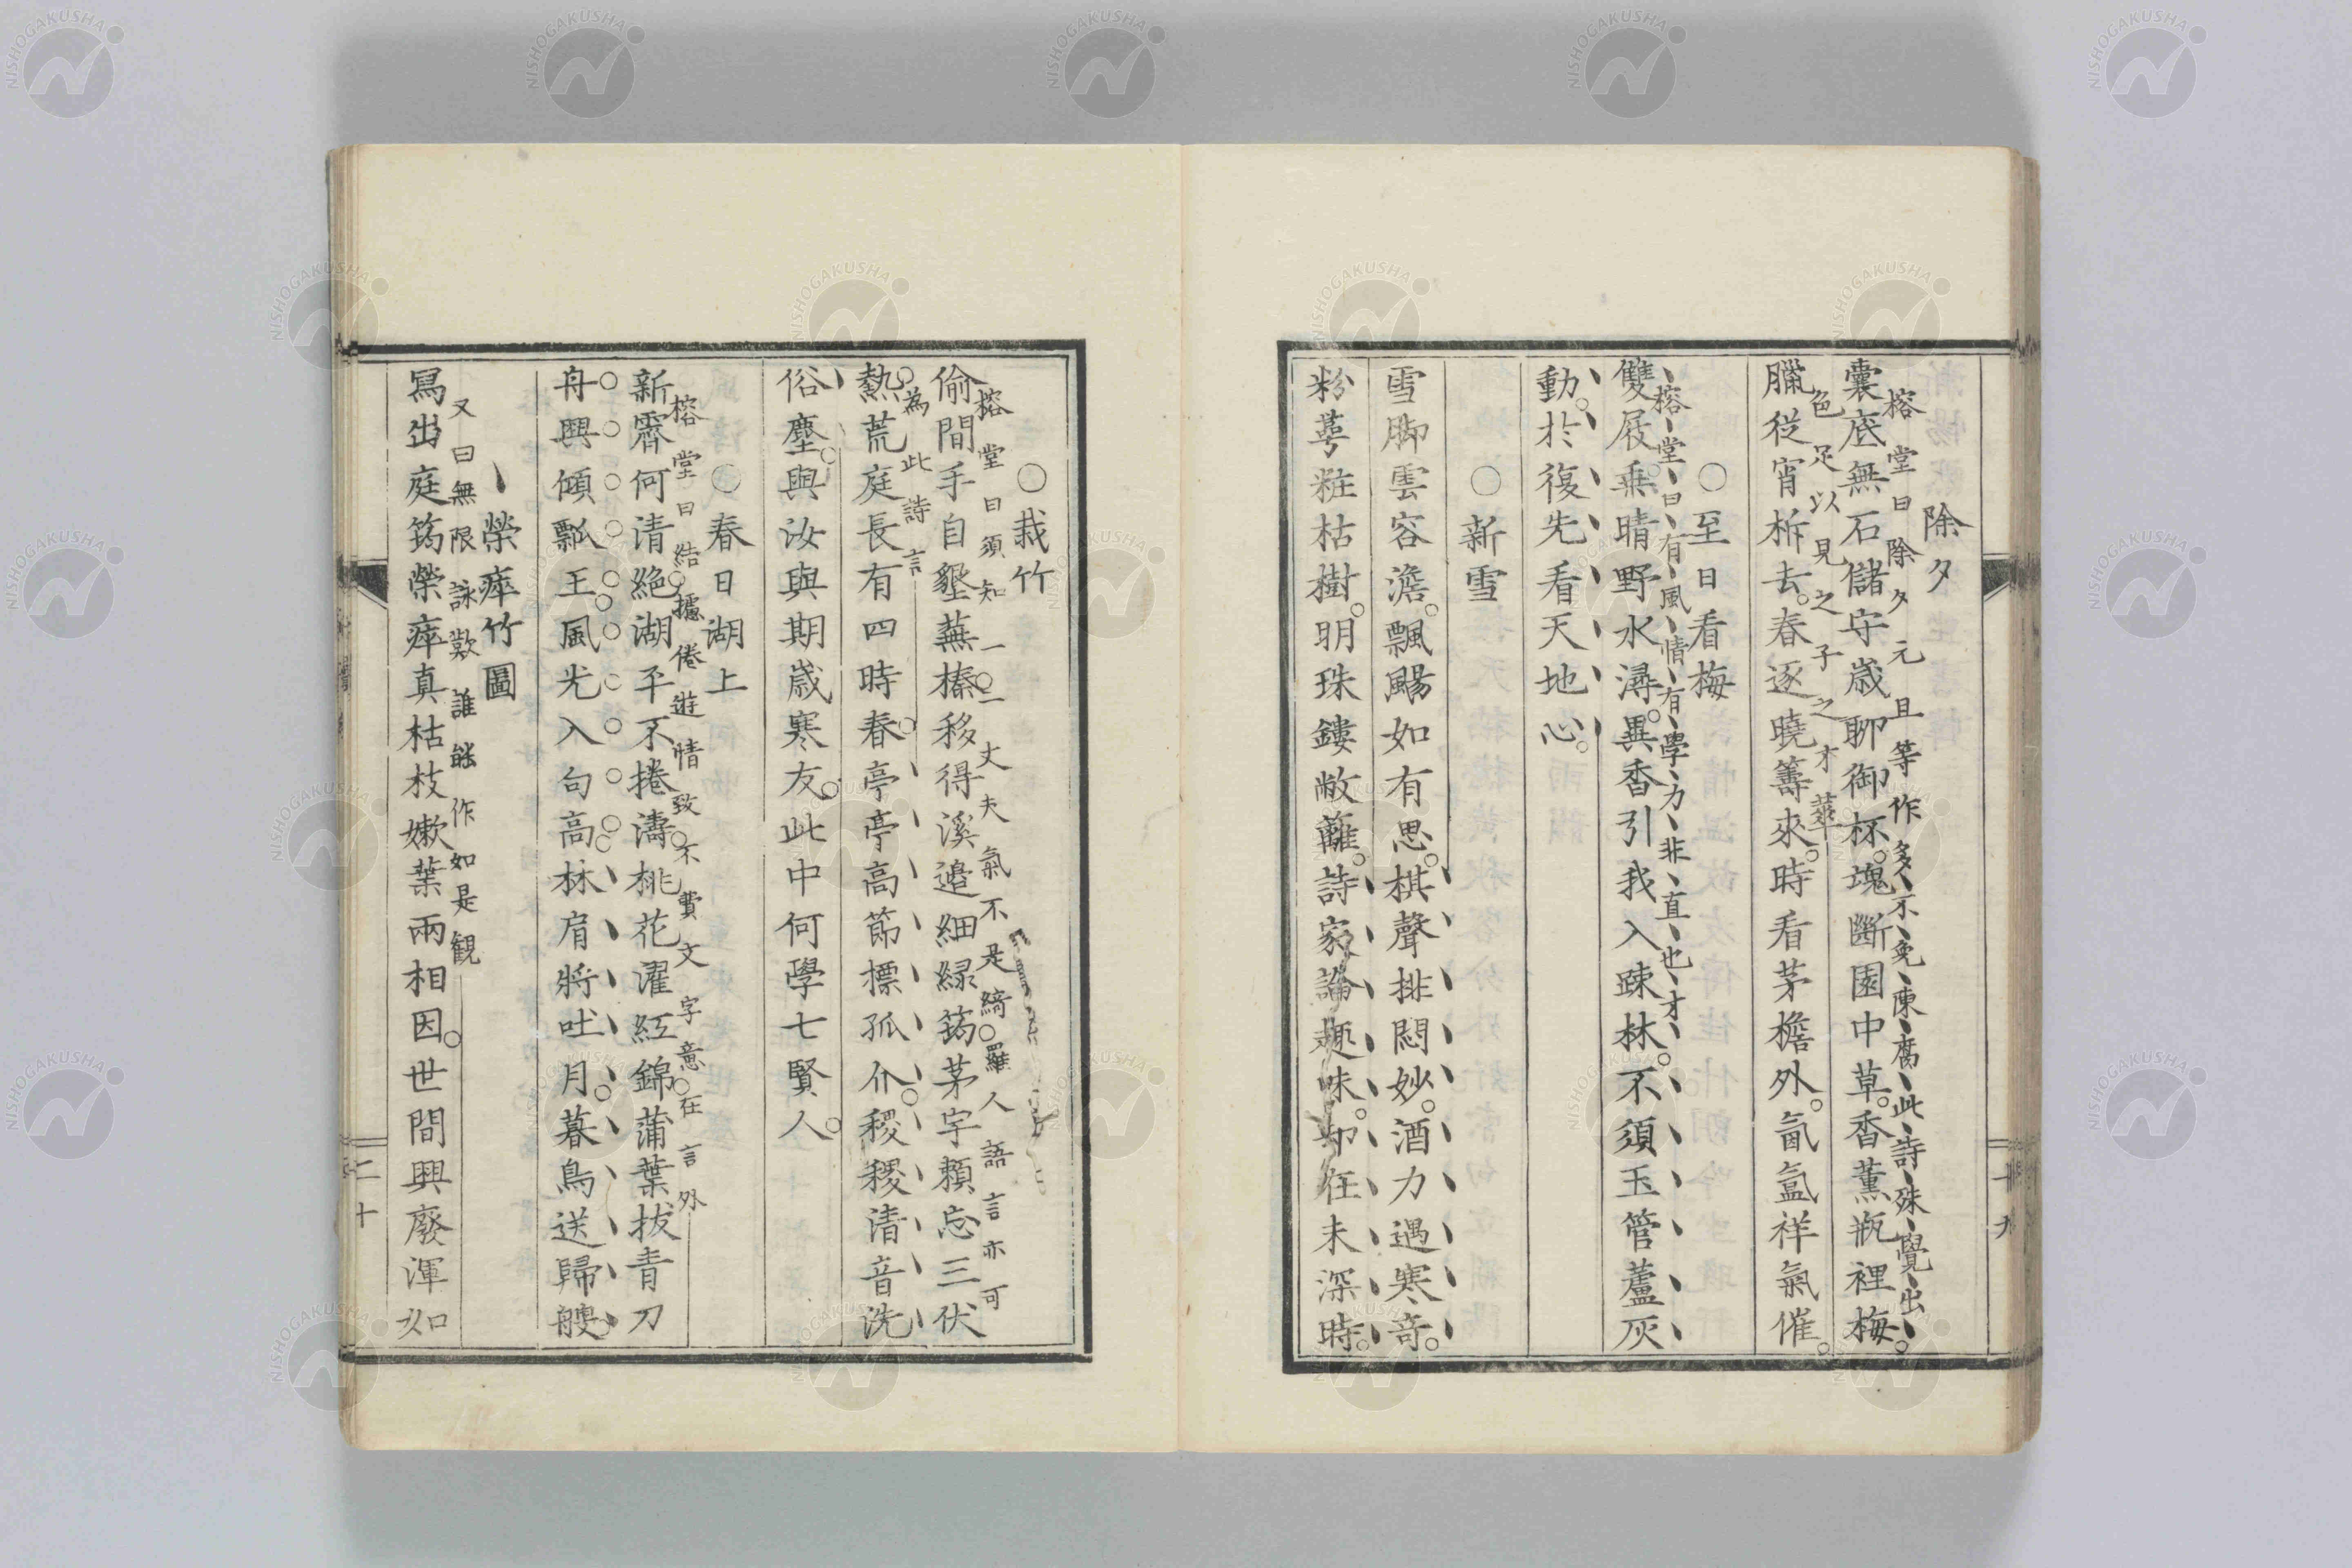 除夕
榕堂曰除夕元旦等作多不免陳腐此詩殊覺出
色足以見之子之才華
囊底無石儲守歳聊御杯塊斷園中草香薫瓶裡梅
臘從宵柝去春逐曉籌來時看茅檐外氤氳祥氣催
○至日看梅
榕堂曰有風情有學力非直也才
雙屐乗晴野水潯異香引我入疎林不須玉管蘆灰
動於復先看天地心
○新雪
雪脚雲容澹飄颺如有思棋聲排悶妙酒力遇寒奇
粉萼粧枯樹明珠鏤敝蘺詩家論趣味却在未深時
十九
○栽竹
榕堂曰須知一二丈夫氣不是綺羅人語言亦可
為此詩言
偷間手自墾蕪榛移得溪邉細緑筠茅宇頼忘三伏
熱荒庭長有四時春亭亭高節標孤介稷稷清音洗
俗塵與汝與期歳寒友此中何學七賢人
○春日湖上
榕堂曰結據倦遊情致不費文字意在言外
新霽何清絶湖平不捲濤桃花濯紅錦蒲葉拔青刀
舟興傾瓢王風光入句高林肩將吐月暮鳥送歸艘
榮瘁竹圖
又曰無限詠歎誰能作如是観
寫出庭筠榮瘁真枯枝嫩葉兩相因世間興廢渾如
二十
NISHOGAKUSHA